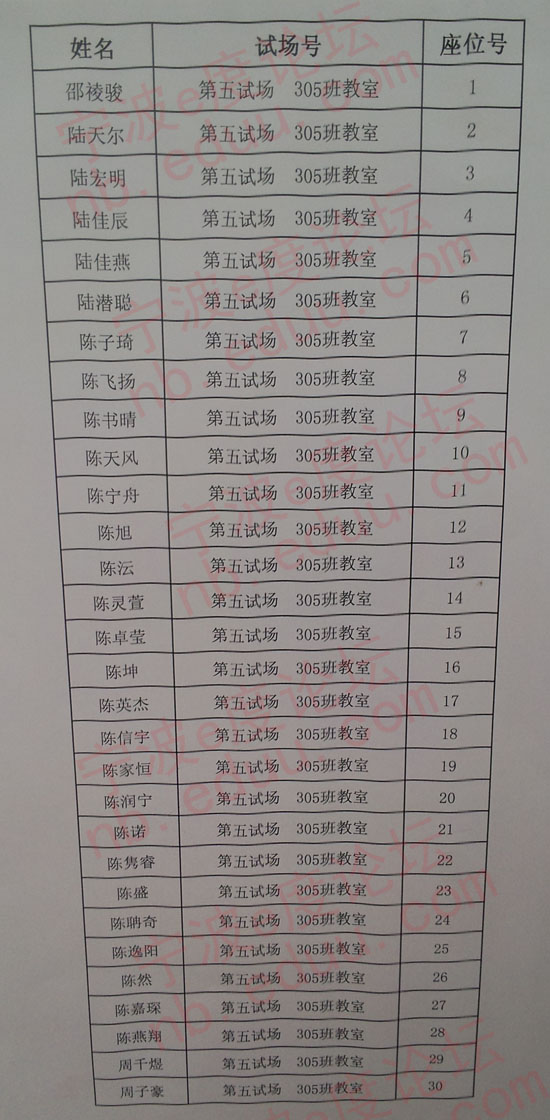 姓名 试场号 座位号
邵祾骏 第五试场 305班教室 1
陆天尔 第五试场 305班教室 2
陆宏明 第五试场 305班教室 3
陆佳辰 第五试场 305班教室 4
陆佳燕 第五试场 305班教室 5
陆潜聪 第五试场 305班教室 6
陈子琦 第五试场 305班教室 7
陈飞扬 第五试场 305班教室 8
陈书晴 第五试场 305班教室 9
陈天风 第五试场 305班教室 10
陈宁舟 第五试场 305班教室 11
陈旭 第五试场 305班教室 12
陈沄 第五试场 305班教室 13
陈灵萱 第五试场 305班教室 14
陈卓莹 第五试场 305班教室 15
陈坤 第五试场 305班教室 16
陈英杰 第五试场 305班教室 17
陈信宇 第五试场 305班教室 18
陈家恒 第五试场 305班教室 19
陈润宁 第五试场 305班教室 20
陈诺 第五试场 305班教室 21
陈隽睿 第五试场 305班教室 22
陈盛 第五试场 305班教室 23
陈聘奇 第五试场 305班教室 24
陈逸阳 第五试场 305班教室 25
陈然 第五试场 305班教室 26
陈嘉琛 第五试场 305班教室 27
陈燕翔 第五试场 305班教室 28
周千煜 第五试场 305班教室 29
周子豪 第五试场 305班教室 30
宁波e度论坛
nb.eduu.com
宁波e度论坛
nb.eduu.com
宁波e度论坛
nb.eduu.com
宁波e度论坛
nb.eduu.com
宁波e度论坛
nb.eduu.com